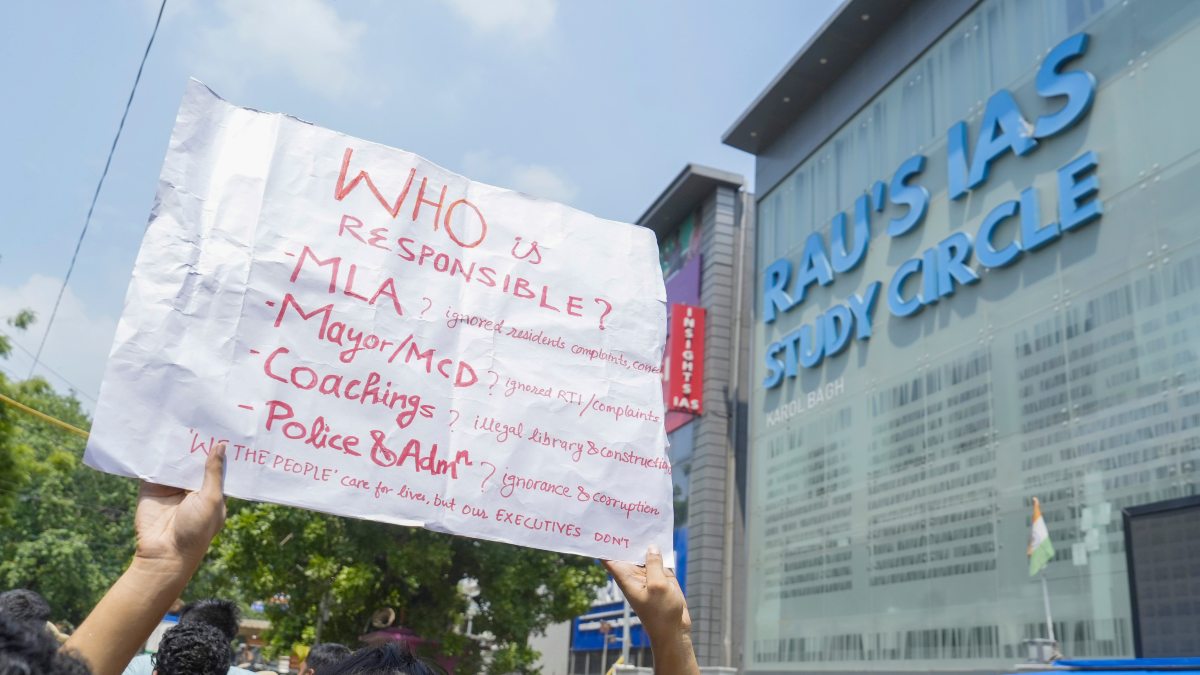 WHO is
RESPONSIBLE?
- MLA ? ignored residents complaints,
- Mayor/MCD ? ignored RTI/complaints
- Coachings ? illegal library & construction
- Police & Admn ? ignorance & corruption
'WE THE PEOPLE' care for lives, but our EXECUTIVES DON'T
INSIGHTS IAS
RAU'S IAS
STUDY CIRCLE
KAROL BAGH